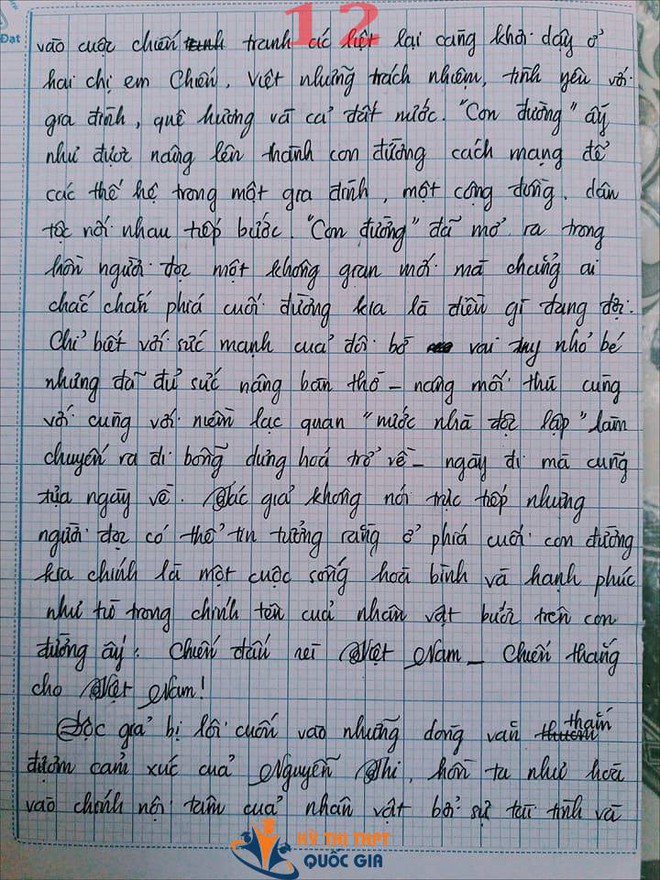 12
Đạt
vào cuộc chiến tranh ác liệt lại càng khơi dậy ở
hai chị em Chiến, Việt những trách nhiệm, tình yêu với
gia đình, quê hương và cả đất nước. "Con đường" ấy
như được nâng lên thành con đường cách mạng để
các thế hệ trong một gia đình, một cộng đồng, dân
tộc nối nhau tiếp bước. "Con đường" đã mở ra trong
hồn người đọc một không gian mới mà chẳng ai
chắc chắn phía cuối đường kia là điều gì đang đợi.
Chỉ biết với sức mạnh của đôi bờ vai tuy nhỏ bé
nhưng đã đủ sức nâng bàn thờ - nâng mối thù cùng
với cùng với niềm lạc quan "nước nhà độc lập" làm
chuyến ra đi bỗng dưng hoá trở về - ngày đi mà cũng
tựa ngày về. Tác giả không nói trực tiếp nhưng
người đọc có thể tin tưởng rằng ở phía cuối con đường
kia chính là một cuộc sống hoà bình và hạnh phúc
như từ trong chính tên của nhân vật bước trên con
đường ấy: Chiến đấu vì Việt Nam - Chiến thắng
cho Việt Nam!
Độc giả bị lôi cuốn vào những dòng văn thấm
đượm cảm xúc của Nguyễn Thi, hồn ta như hoà
vào chính nội tâm của nhân vật bởi sự tài tình và
KỲ THI THPT
QUỐC GIA